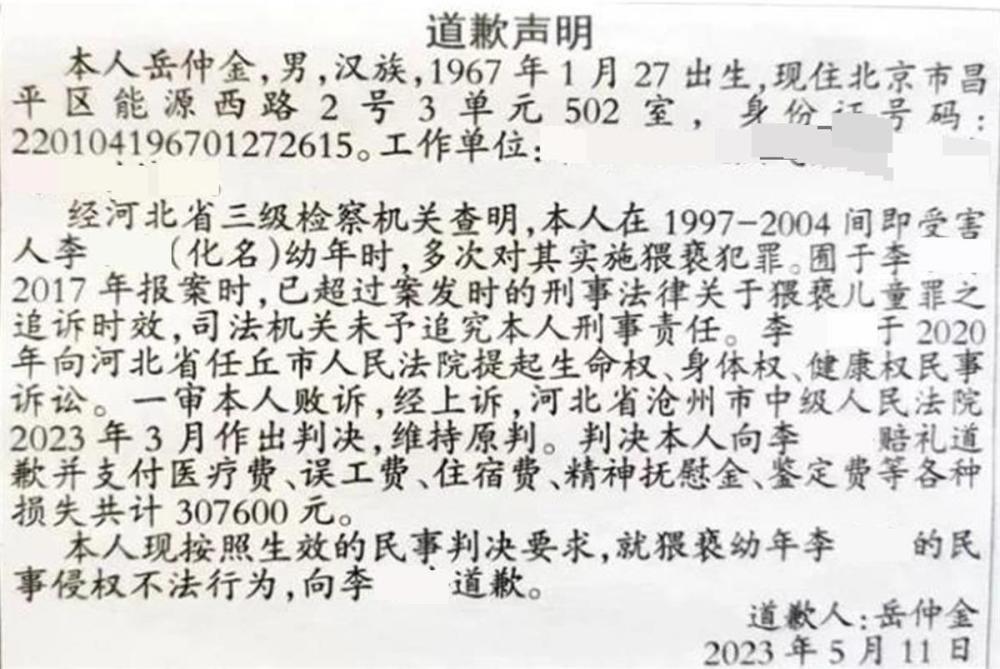 道歉声明
本人岳仲金,男,汉族,1967年1月27出生,现住北京市昌
平区能源西路2号3单元502室,身份证号码:
220104196701272615。工作单位:
经河北省三级检察机关查明,本人在1997-2004间即受害
人李 (化名)幼年时,多次对其实施猥亵犯罪。囿于李
2017年报案时,已超过案发时的刑事法律关于猥亵儿童罪之
追诉时效,司法机关未予追究本人刑事责任。李 于2020
年向河北省任丘市人民法院提起生命权、身体权、健康权民事
诉讼。一审本人败诉,经上诉,河北省沧州市中级人民法院
2023年3月作出判决,维持原判。判决本人向李 赔礼道
歉并支付医疗费、误工费、住宿费、精神抚慰金、鉴定费等各种
损失共计307600元。
本人现按照生效的民事判决要求,就猥亵幼年李 的民
事侵权不法行为,向李 道歉。
道歉人:岳仲金
2023年5月11日